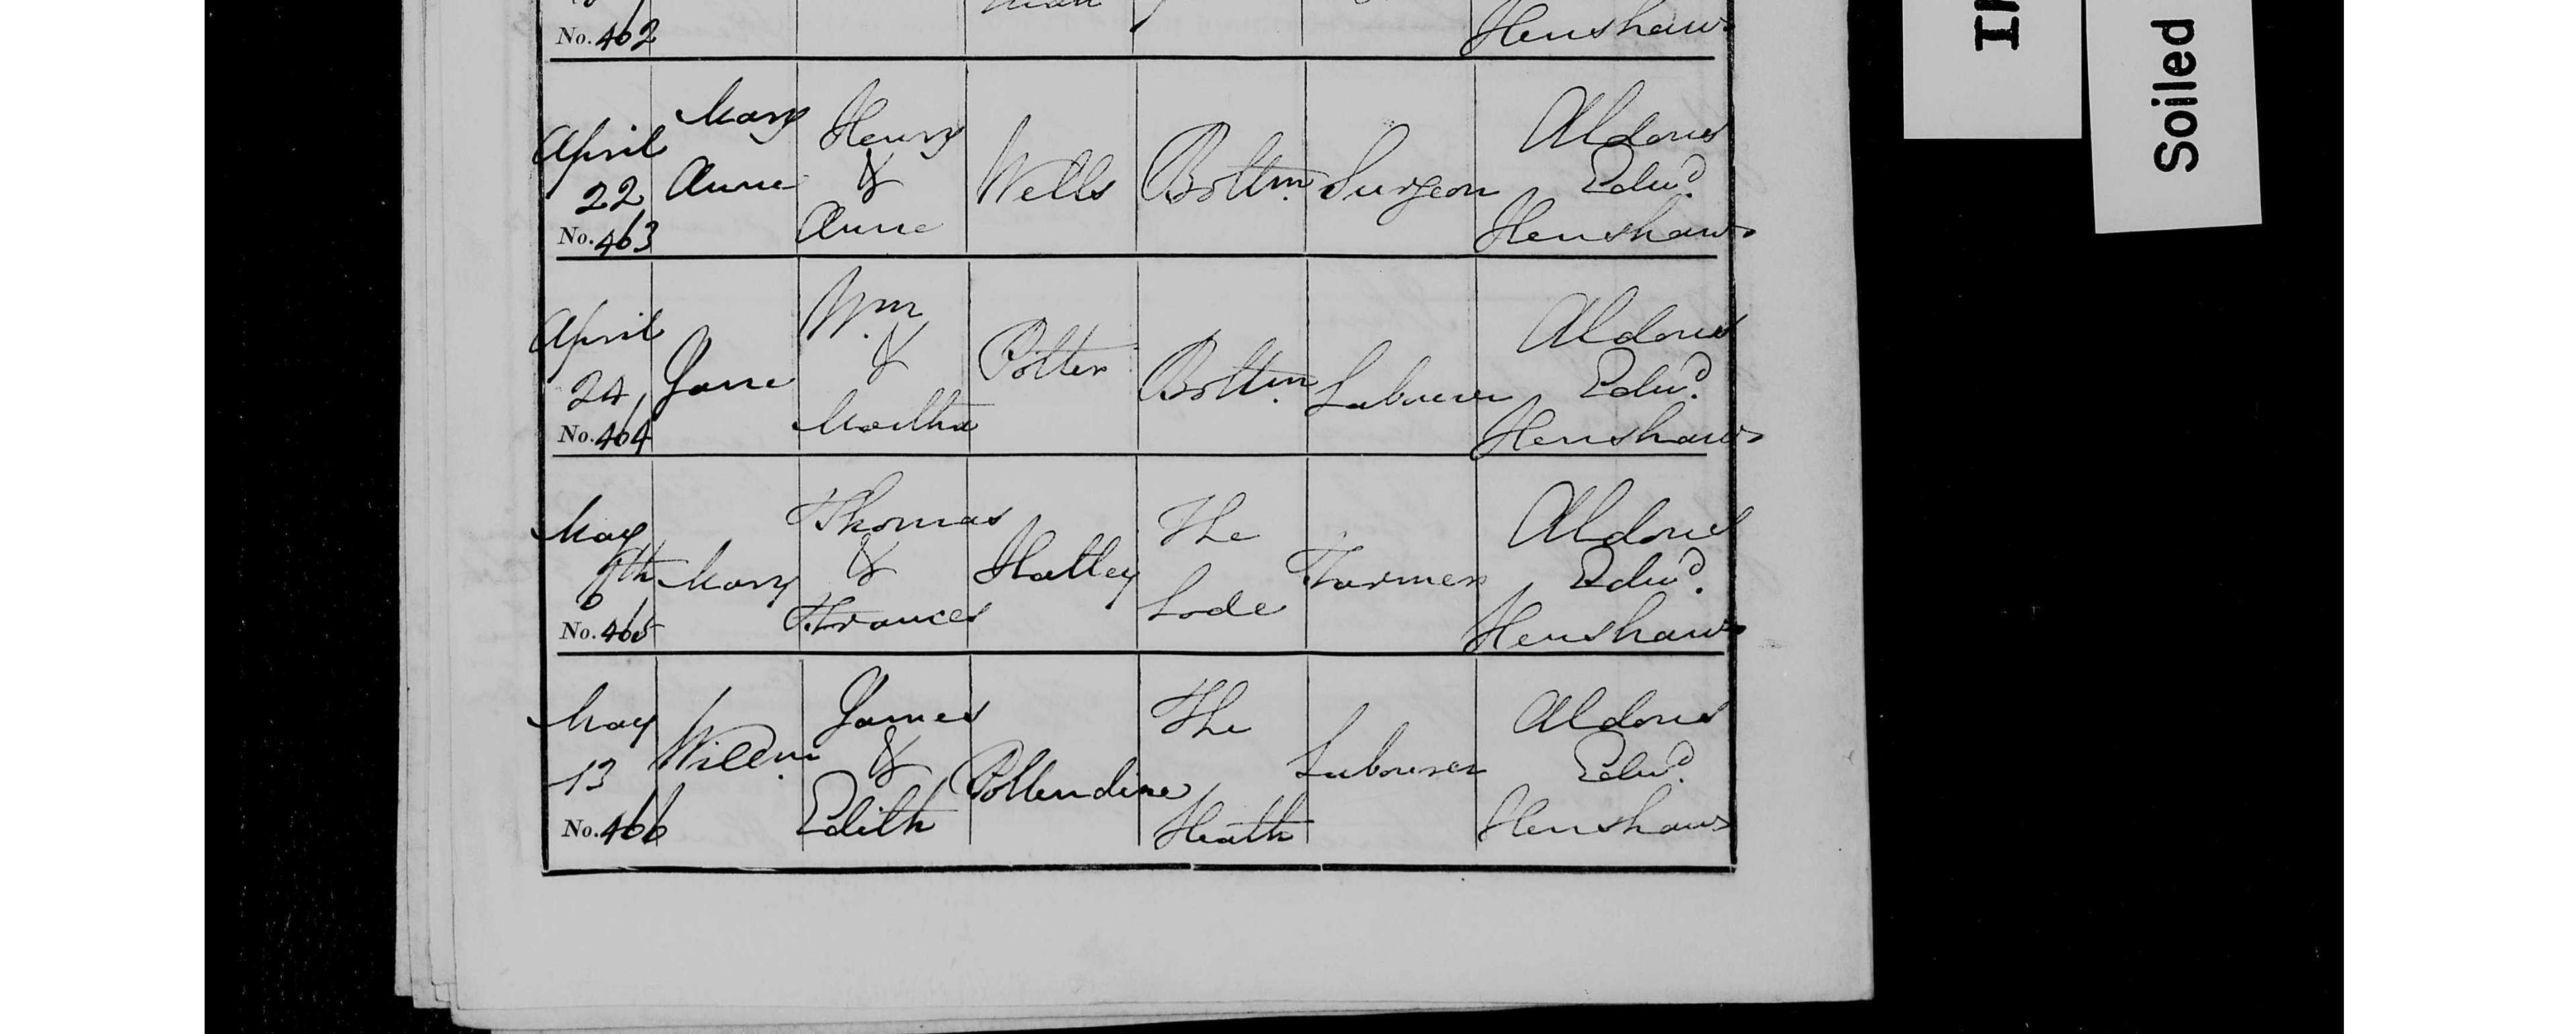 No. 462
Henshaw
April 22 No. 463
Mary Anne
Henry & Anne
Wells
Bottm.
Surgeon
Aldous Edwd. Henshaw
April 24 No. 464
Jane
Wm. & Martha
Potter
Bottm.
Labourer
Aldous Edwd. Henshaw
May 6th No. 465
Mary
Thomas & Frances
Hatley
The Lode
Farmer
Aldous Edwd. Henshaw
May 13 No. 466
Willm.
James & Edith
Pollendine
The Heath
Labourer
Aldous Edwd. Henshaw
Soiled